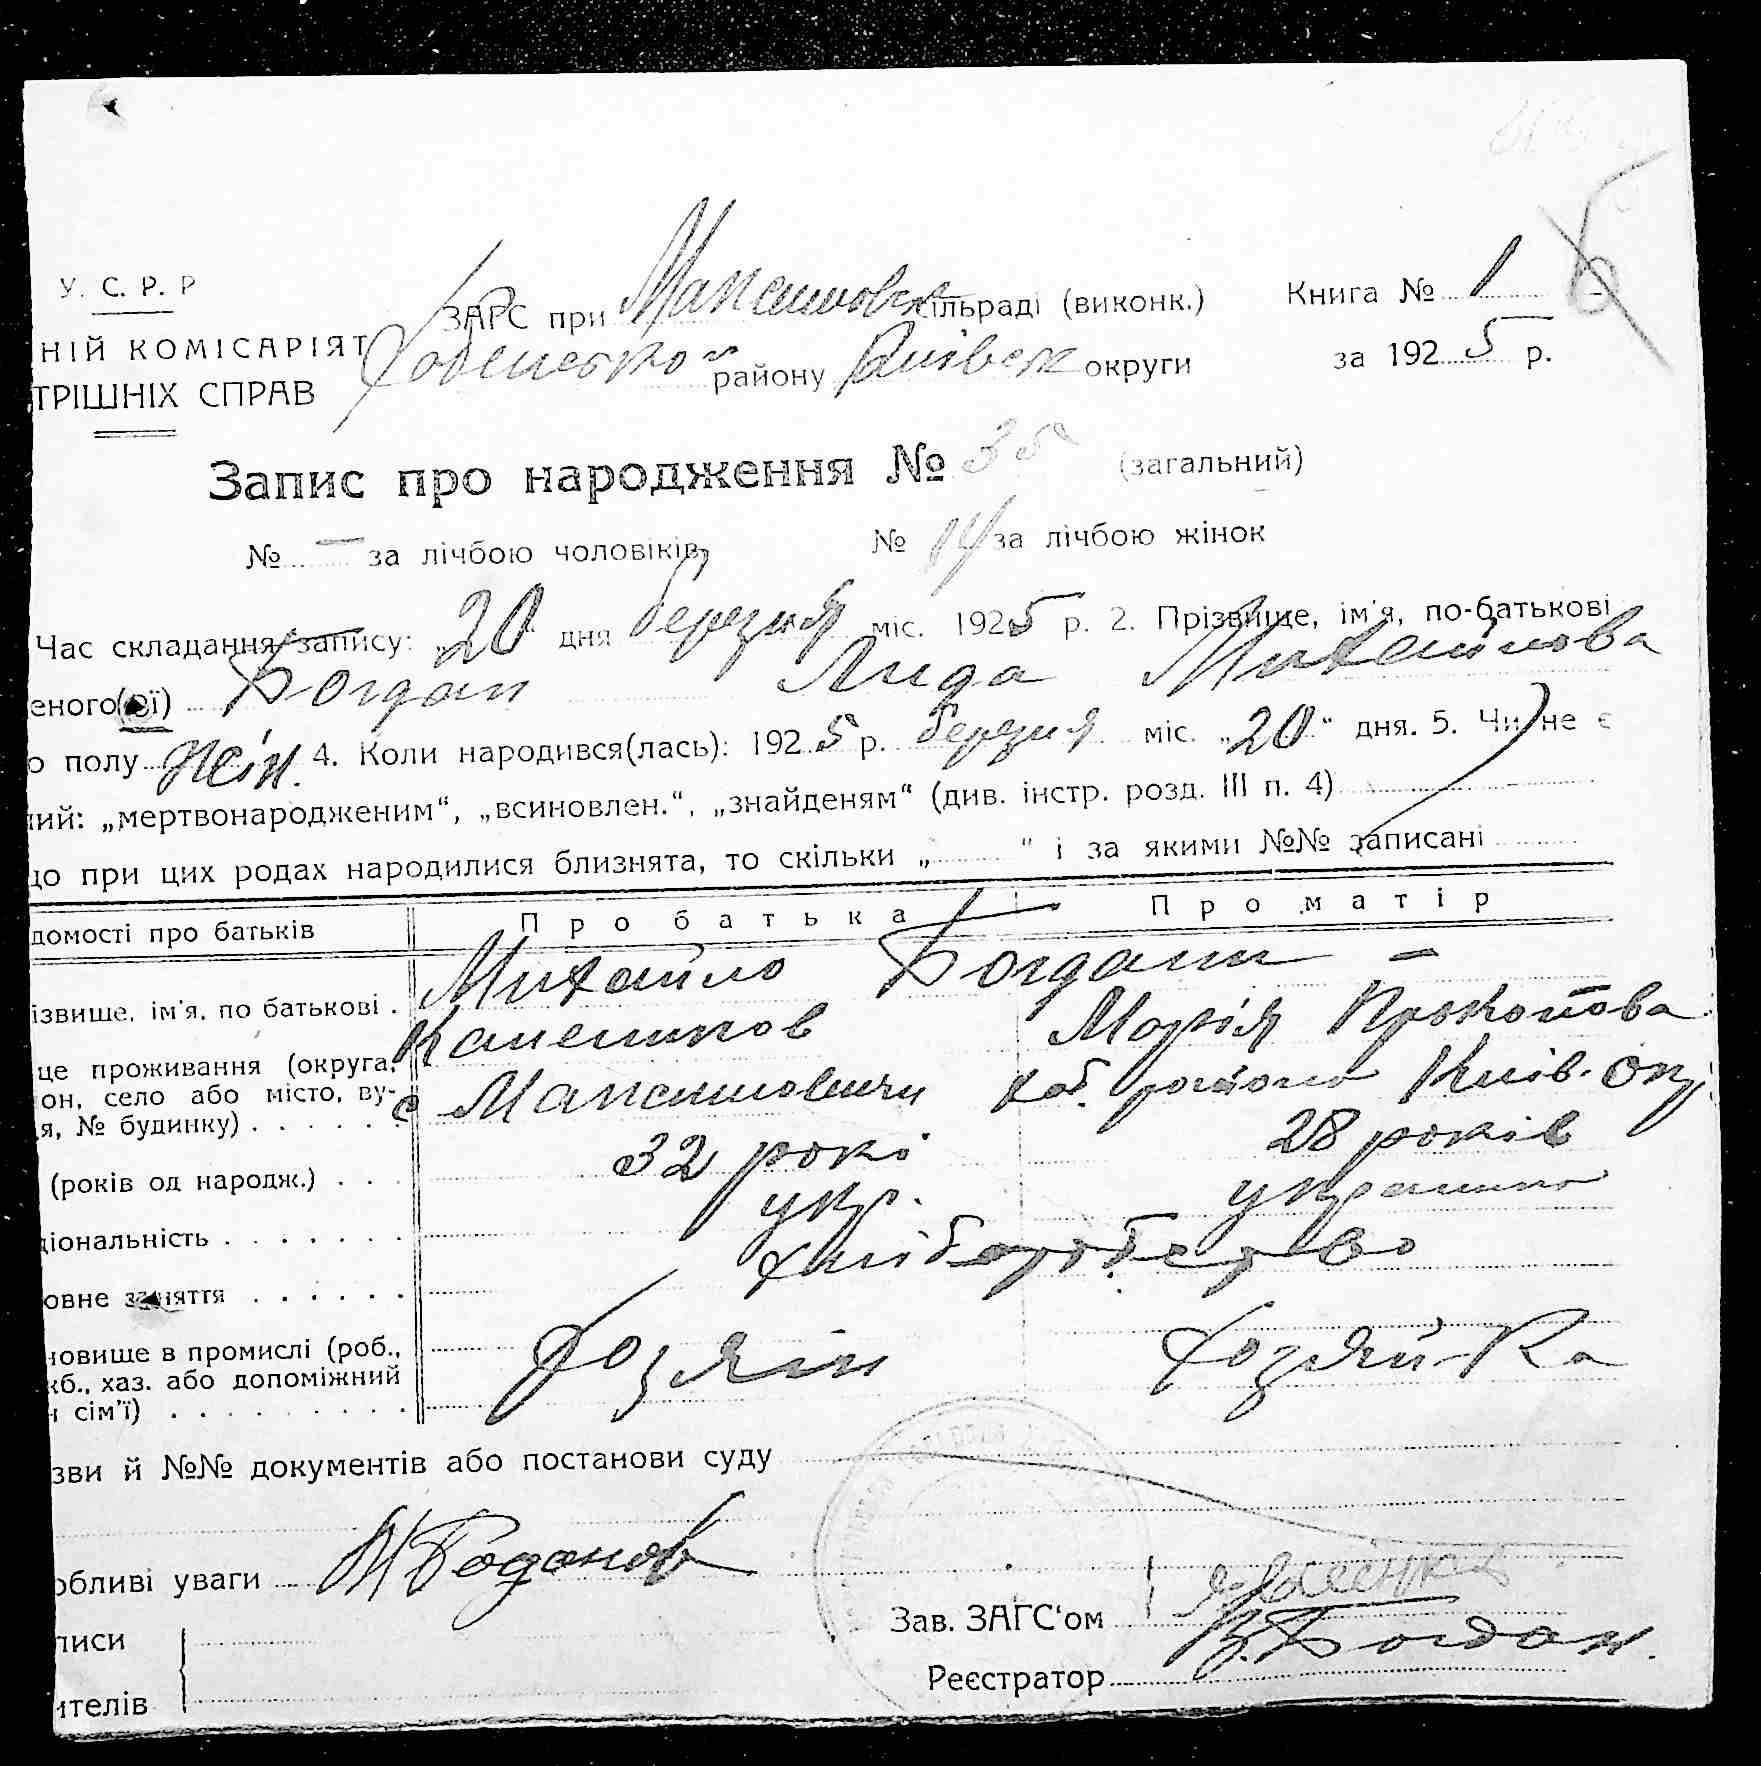 У. С. Р. Р
НІЙ КОМІСАРІЯТ
ТРІШНІХ СПРАВ
ЗАГС при Максимовск сільраді (виконк.)
району Київск округи
Книга № 1
6
за 1925 р.
Запис про народження № 35 (загальний)
№ — за лічбою чоловіків, № 14 за лічбою жінок
Час складання запису: „20“ дня березня міс. 1925 р. 2. Прізвище, ім'я, по-батькові
еного(ої) Богдан Лида Михайлова
о полу жін. 4. Коли народився(лась): 1925 р. березня міс. „20“ дня. 5. Чи не є
ий: „мертвонародженим“, „всиновлен.“, „знайденям“ (див. інстр. розд. III п. 4)
що при цих родах народилися близнята, то скільки „ “ і за якими №№ записані
домості про батьків Про батька Про матір
ізвище, ім'я, по батькові . Михайло Богдани —
Марія Прокопова
це проживання (округа,
он, село або місто, ву-
я, № будинку) . . . . . с Максимовичи Хаб. района Київ. окр.
(років од народж.) . . . 32 рокі 28 років
ціональність . . . . . . . укр. украинка
овне заняття . . . . . . хліборобство
новище в промислі (роб.,
жб., хаз. або допоміжний
н сім'ї) . . . . . . . . . Хозяін Хозяй-ка
зви й №№ документів або постанови суду
обливі уваги М Богданов
Зав. ЗАГС'ом
писи
Реєстратор В. Богдан.
ителів